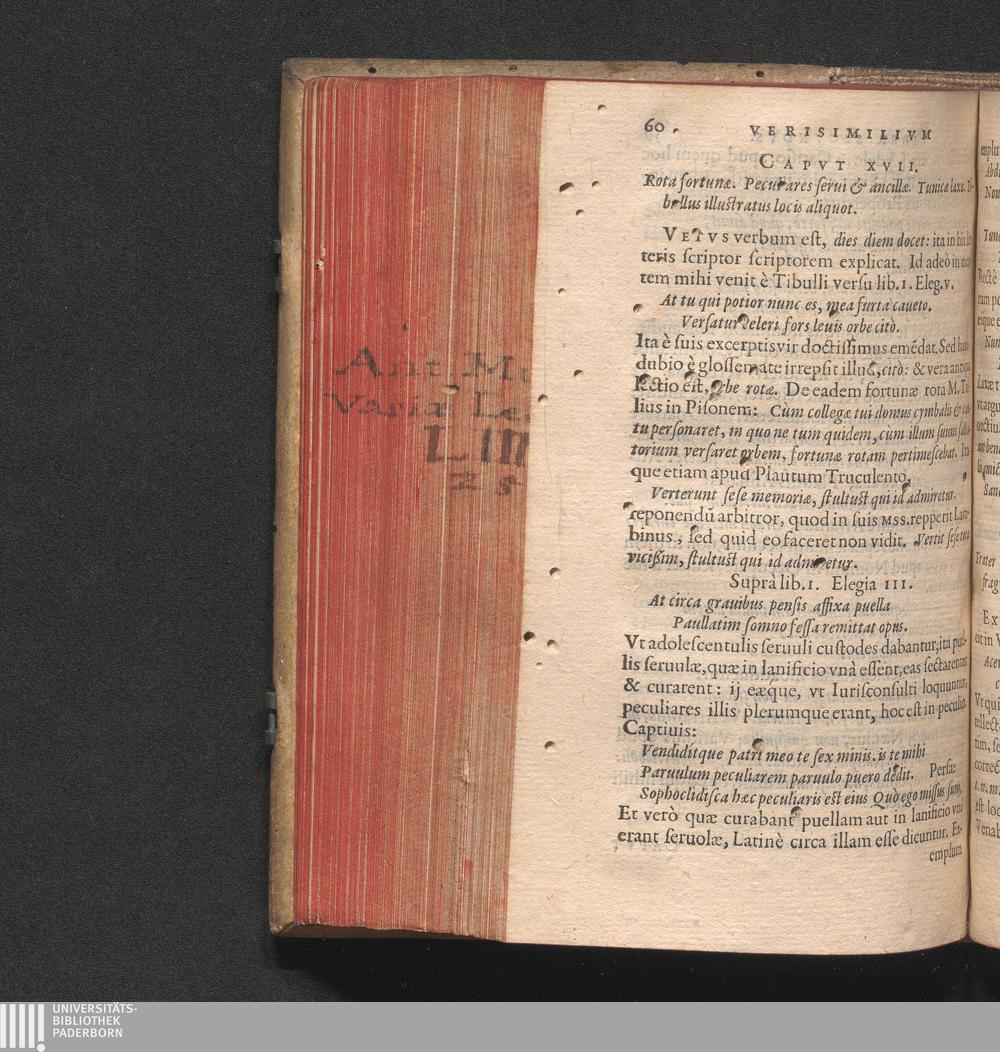 60.
VERISIMILIVM
CAPVT XVII.
Rota fortunæ. Peculiares serui & ancillæ. Tunicæ laxæ. Ti-
bullus illustratus locis aliquot.
VETVS verbum est, dies diem docet: ita in his
teris scriptor scriptorem explicat. Id adeò in
tem mihi venit è Tibulli versu lib. 1. Eleg. v.
At tu qui potior nunc es, mea furta caueto.
Versatur celeri fors leuis orbe citò.
Ita è suis excerptis vir doctissimus emēdat. Sed
dubio è glossemate irrepsit illud, citò: & vera antiqua
lectio est, orbe rotæ. De eadem fortunæ rota M. Tul-
lius in Pisonem: Cùm collegæ tui domus cymbalis &
tu personaret, in quo ne tum quidem, cùm illum suum
torium versaret orbem, fortunæ rotam pertimescebat. Ita-
que etiam apud Plautum Truculento,
Verterunt sese memoriæ, stultust qui id admiretur.
reponendū arbitror, quod in suis MSS. repperit Lam-
binus, sed quid eo faceret non vidit. Vertit sese
vicißim, stultust qui id admiretur.
Suprà lib. 1. Elegia III.
At circa grauibus pensis affixa puella
Paullatim somno fessa remittat opus.
Vt adolescentulis seruuli custodes dabantur, ita puel-
lis seruulæ, quæ in lanificio vnà essent, eas sectarentur
& curarent: ij eæque, vt Iurisconsulti loquuntur,
peculiares illis plerumque erant, hoc est in peculio.
Captiuis:
Venditítque patri meo te sex minis. is te mihi
Paruulum peculiarem paruulo puero dedit. Persa:
Sophoclidisca hæc peculiaris est eius Quò ego missus sum,
Et verò quæ curabant puellam aut in lanificio vnà
erant seruolæ, Latinè circa illam esse dicuntur. Ex-
emplum
Ant. M
Variæ Le
LIII
25
empla
Nou
Tunc
Rectè
rum
eique
Num
Laxæ
vt argu
frag
Ex
Vt qui
rellect
tim, se
est loc
Venab
UNIVERSITÄTS-
BIBLIOTHEK
PADERBORN